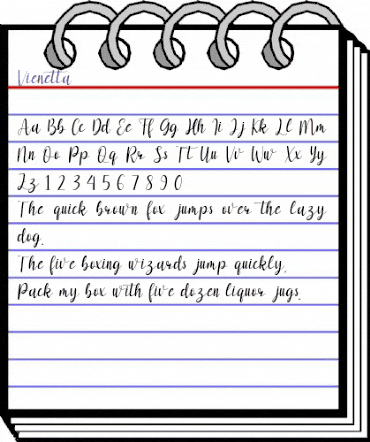 Vienetta
Aa Bb Cc Dd Ee Ff Gg Hh Ii Jj Kk Ll Mm
Nn Oo Pp Qq Rr Ss Tt Uu Vv Ww Xx Yy
Zz 1 2 3 4 5 6 7 8 9 0
The quick brown fox jumps over the lazy
dog.
The five boxing wizards jump quickly.
Pack my box with five dozen liquor jugs.